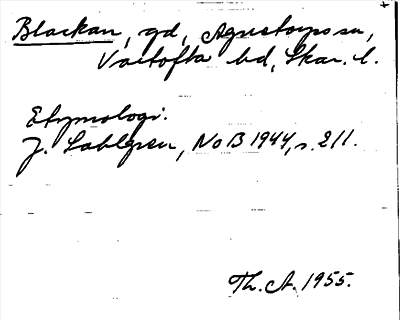 Blackan, gd, Agnetorps sn,
Vartofta hd, Skar. l.
Etymologi:
J. Sahlgren, NoB 1944, s. 211.
Th. A. 1955.